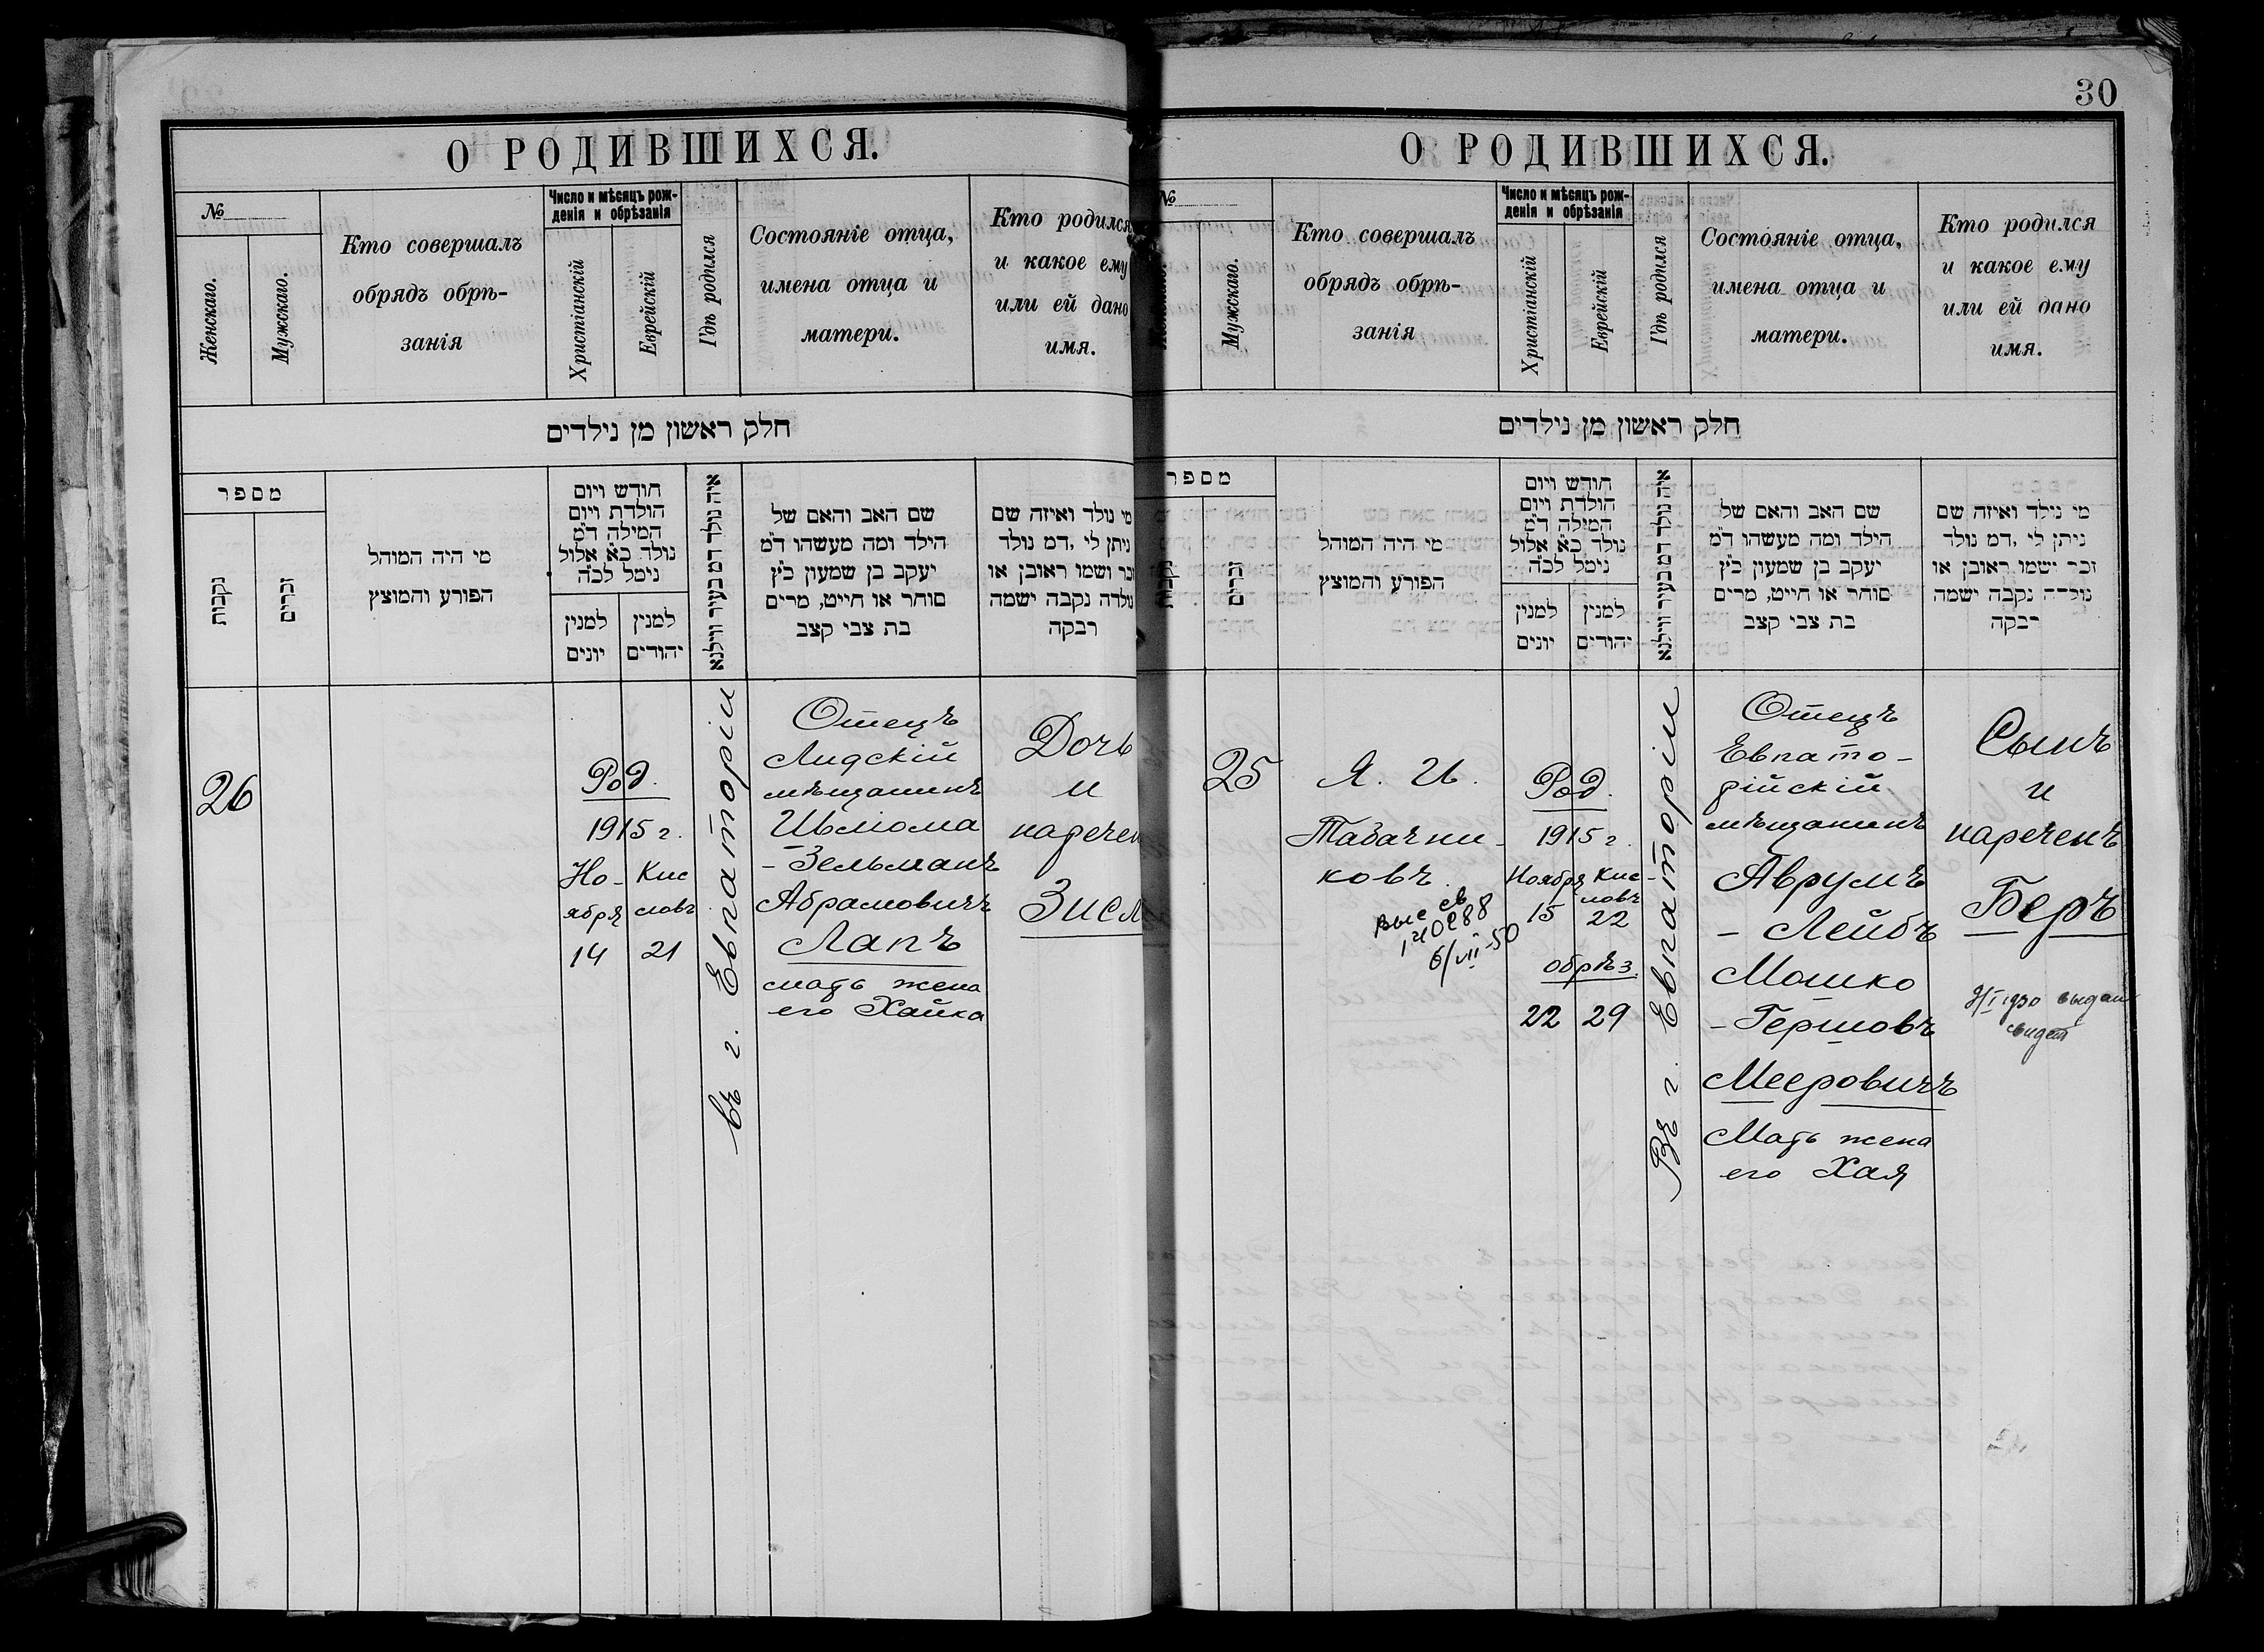 О РОДИВШИХСЯ.
№
Женскаго.
Мужскаго.
Кто совершалъ
обрядъ обрѣ-
занія
Число и мѣсяцъ рож-
денія и обрѣзанія
Христіанскій
Еврейскій
Гдѣ родился
Состояніе отца,
имена отца и
матери.
Кто родился
и какое ему
или ей дано
имя.
חלק ראשון מן נילדים
מספר
נקבות
זכרים
מי היה המוהל
הפורע והמוצץ
חודש ויום
הולדת ויום
המילה ד״מ
נולד כ״א אלול
נימל לכ״ה
למנין
יונים
למנין
יהודים
איה נולד דמ בעיר ווילנא
שם האב והאם של
הילד ומה מעשהו ד״מ
יעקב בן שמעון כ״ץ
סוחר או חייט, מרים
בת צבי קצב
מי נולד ואיזה שם
ניתן לי ,דמ נולד
זכר ושמו ראובן או
נולדה נקבה ישמה
רבקה
26
Род.
1915 г.
Но- Кис
ября словъ
14 21
въ г. Евпаторіи
Отецъ
Лидскій
мѣщанинъ
Шліома
- Зельманъ
Абрамовичъ
Лапъ
мать жена
его Хайка
Дочь
и
наречен
Зисл
30
О РОДИВШИХСЯ.
№
Мужскаго.
Кто совершалъ
обрядъ обрѣ-
занія
Число и мѣсяцъ рож-
денія и обрѣзанія
Христіанскій
Еврейскій
Гдѣ родился
Состояніе отца,
имена отца и
матери.
Кто родился
и какое ему
или ей дано
имя.
חלק ראשון מן נילדים
מספר
נקבות
זכרים
מי היה המוהל
הפורע והמוצץ
חודש ויום
הולדת ויום
המילה ד״מ
נולד כ״א אלול
נימל לכ״ה
למנין
יונים
למנין
יהודים
איה נולד דמ בעיר ווילנא
שם האב והאם של
הילד ומה מעשהו ד״מ
יעקב בן שמעון כ״ץ
סוחר או חייט, מרים
בת צבי קצב
מי נילד ואיזה שם
ניתן לי ,דמ נולד
זכר ישמו ראובן או
נולדה נקבה ישמה
רבקה
25
Я. И.
Табачни-
ковъ.
6/VII-50
Род.
1915 г.
Ноября Кис-
ловъ
15 22
обрѣз.
22 29
Въ г. Евпаторіи
Отецъ
Евпато-
рійскій
мѣщанинъ
Аврумъ
- Лейбъ
Мошко
- Гершовъ
Мееровичъ
Мать жена
его Хая
Сынъ
и
нареченъ
Беръ